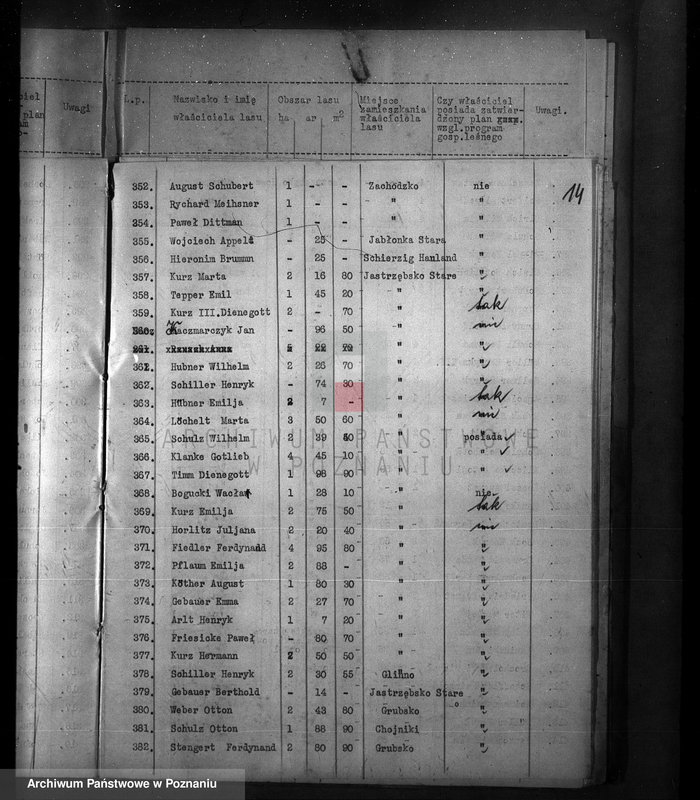 ciel
plan
am
o-
Uwagi
L.p.
Nazwisko i imię
właściciela lasu
Obszar lasu
ha ar m2
Miejsce
zamieszkania
właściciela
lasu
Czy właściciel
posiada zatwier-
dzony plan
wzgl.program
gosp.leśnego
Uwagi.
14
352. August Schubert 1 - - Zachodzko nie
353. Rychard Meihsner 1 - - " "
254. Paweł Dittman 1 - - " "
355. Wojciech Appelt - 25 - Jabłonka Stara "
356. Hieronim Brummn - 25 - Schierzig Hauland "
357. Kurz Marta 2 16 80 Jastrzębsko Stare "
358. Tepper Emil 1 45 20 " "
359. Kurz III.Dienegott 2 - 70 " tak
360. Kaczmarczyk Jan - 96 50 " nie
361. Hubner Wilhelm 2 26 70 " "
362. Schiller Henryk - 74 80 " "
363. Hübner Emilja 2 7 - " tak
364. Löchelt Marta 3 50 60 " nie
365. Schulz Wilhelm 2 39 40 " posiada
366. Klanke Gotlieb 4 45 10 " "
367. Timm Dienegott 1 98 90 " "
368. Bogucki Wacław 1 28 10 " nie
369. Kurz Emilja 2 75 50 " tak
370. Horlitz Juljana 2 20 40 " nie
371. Fiedler Ferdynand 4 95 80 " "
372. Pflaum Emilja 2 88 - " "
373. Köther August 1 80 30 " "
374. Gebauer Emma 2 27 70 " "
375. Arlt Henryk 1 7 20 " "
376. Friesicke Paweł - 80 70 " "
377. Kurz Hermann 2 50 50 " "
378. Schiller Henryk 2 30 55 Glinno "
379. Gebauer Berthold - 14 - Jastrzębsko Stare "
380. Weber Otton 2 43 80 Grubsko "
381. Schulz Otton 1 88 90 Chojniki "
382. Stengert Ferdynand 2 80 90 Grubsko "
ARCHIWUM PAŃSTWOWE
W POZNANIU
Archiwum Państwowe w Poznaniu